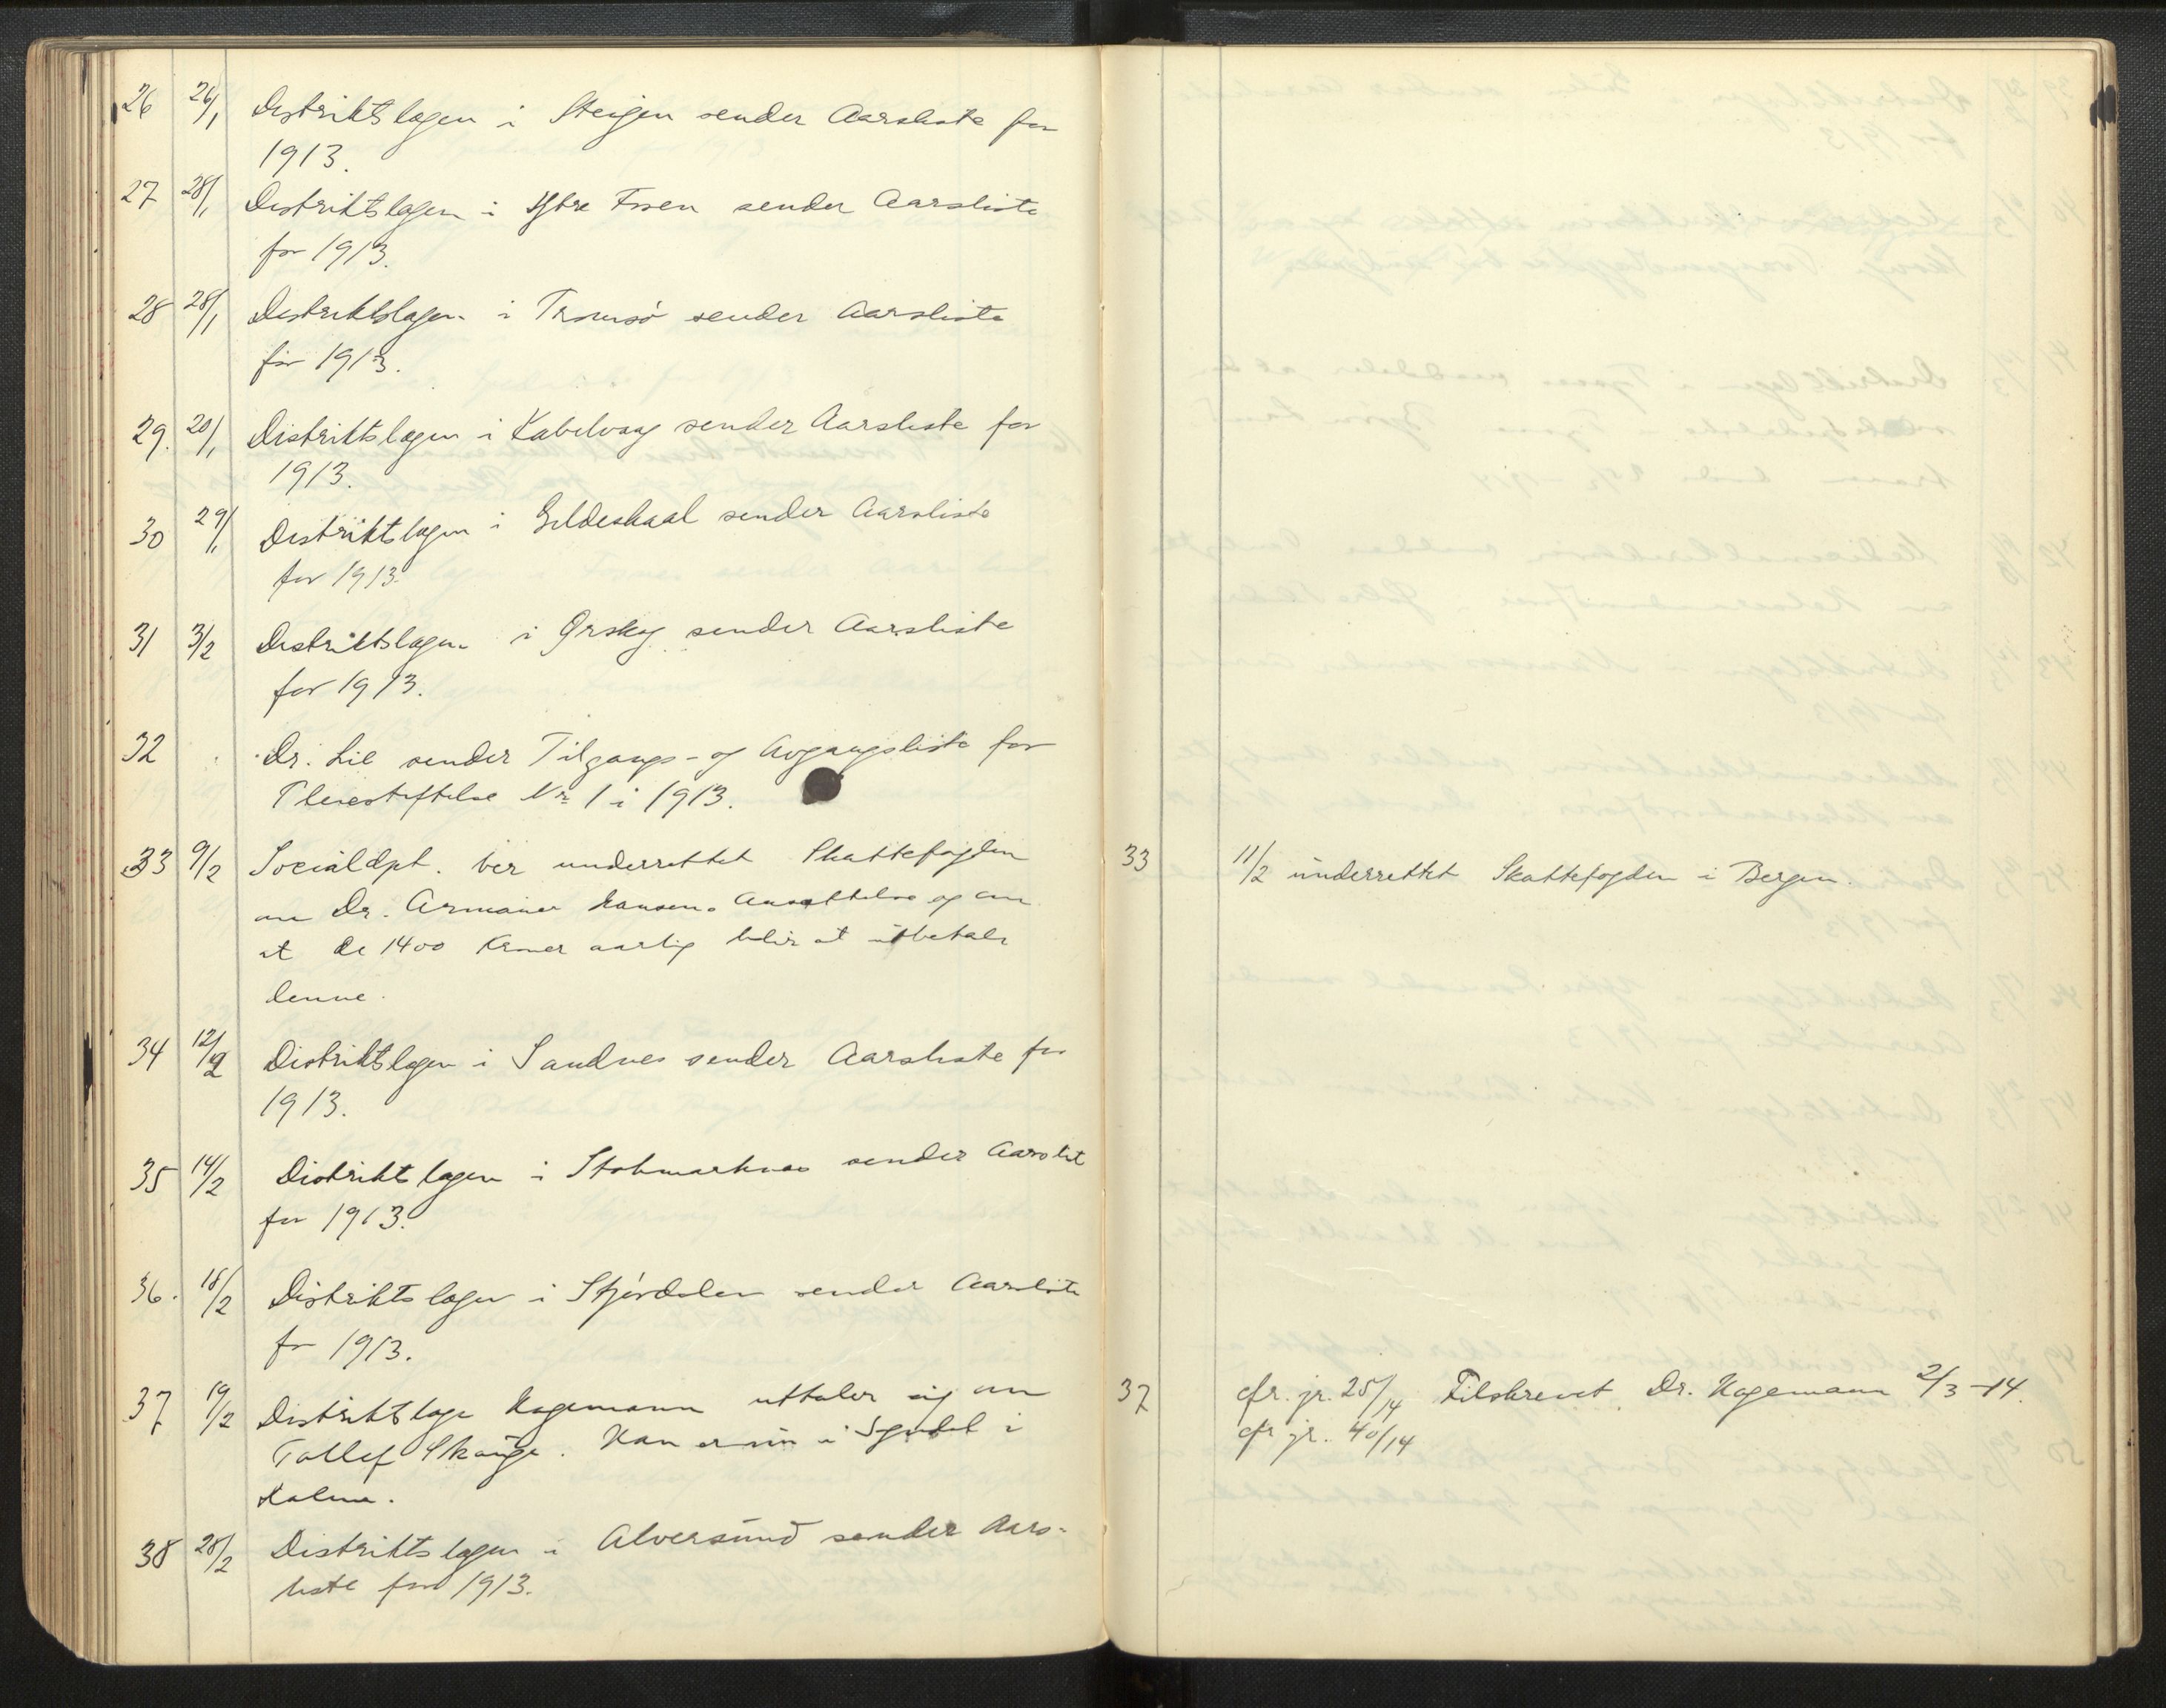 26 26/1 Distriktslægen i Steigen sender Aarsliste for
1913.
27 28/1 Distriktslægen i Ytre Fosen sender Aarsliste
for 1913.
28 28/1 Distriktslægen i Tromsö sender Aarsliste
for 1913.
29. 20/1 Distriktslægen i Kabelvaag sender Aarsliste for
1913.
30 29/1 Distriktslægen i Gildeskaal sender Aarsliste
for 1913
31 3/2 Distriktslægen i Ørskog sender Aarsliste
for 1913.
32 Dr. Lie sender Tilgangs- og Avgangsliste for
Pleiestiftelse No 1 i 1913.
33 9/2 Socialdpt. ber underrettet Skattefogden
om Dr. Armauer Hansens Ansættelse og om
at de 1400 Kroner aarlig blir at utbetale
denne.
34 12/2 Distriktslægen i Sandnes sender Aarsliste for
1913.
35 14/2 Distriktslægen i Stokmarknes sender Aarslist
for 1913.
36. 18/2 Distriktslægen i Stjördalen sender Aarsliste
for 1913.
37 19/2 Distriktslæge Hagemann uttaler sig om
Tollef. Han er nu i
38 28/2 Distriktslægen i Alversund sender Aars-
liste for 1913.
33 11/2 underrettet Skattefogden i Bergen.
37 cfr. jr. 25/14 Tilskrevet Dr. Hagemann 2/3-14.
cfr jr. 40/14